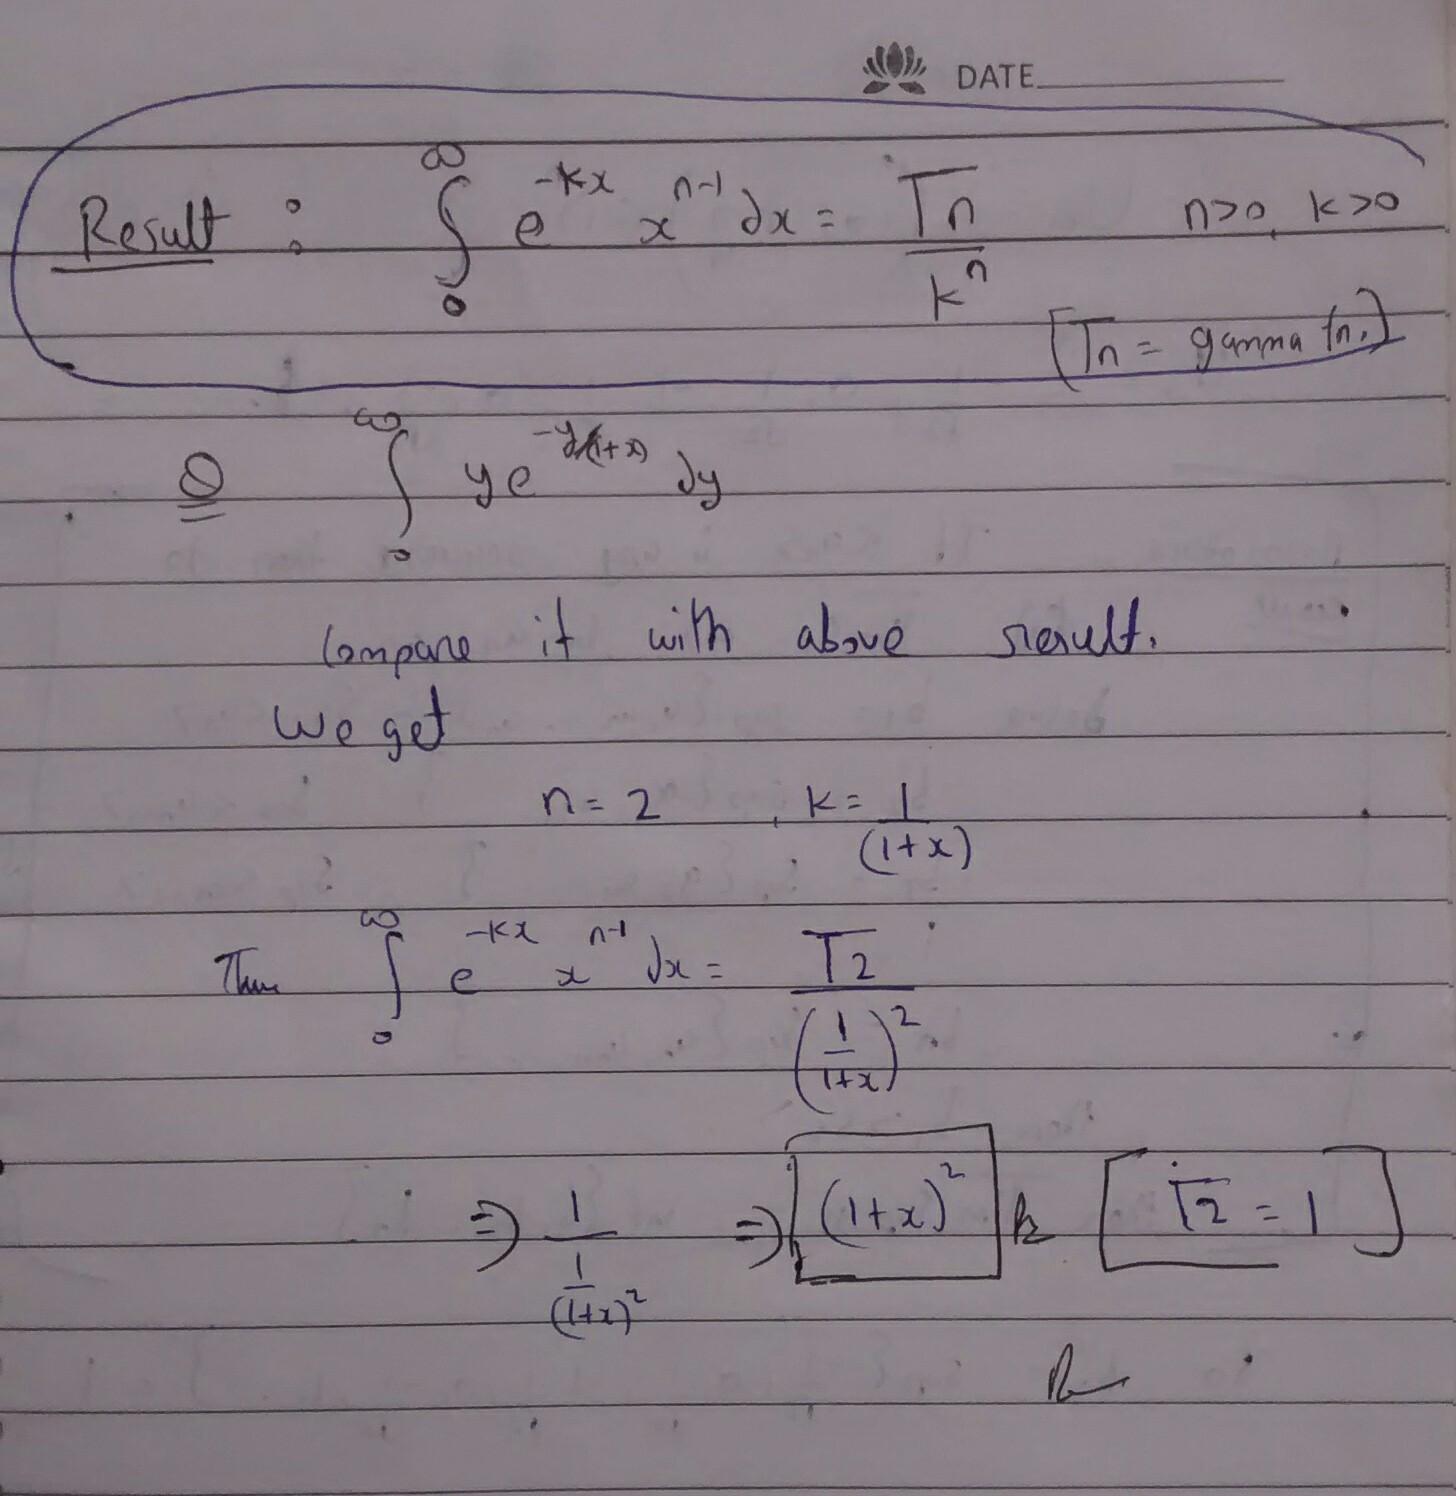 DATE
Result : ∫₀^∞ e^{-kx} x^{n-1} dx = Γn / k^n n>0, k>0
[Γn = gamma fn.]
Q ∫₀^∞ y e^{-y/(1+x)} dy
Compare it with above result.
We get
n = 2 , k = 1/(1+x)
Then ∫₀^∞ e^{-kx} x^{n-1} dx = Γ2 / (1/(1+x))^2
⇒ 1 / (1/(1+x)^2) ⇒ (1+x)^2 [Γ2 = 1]